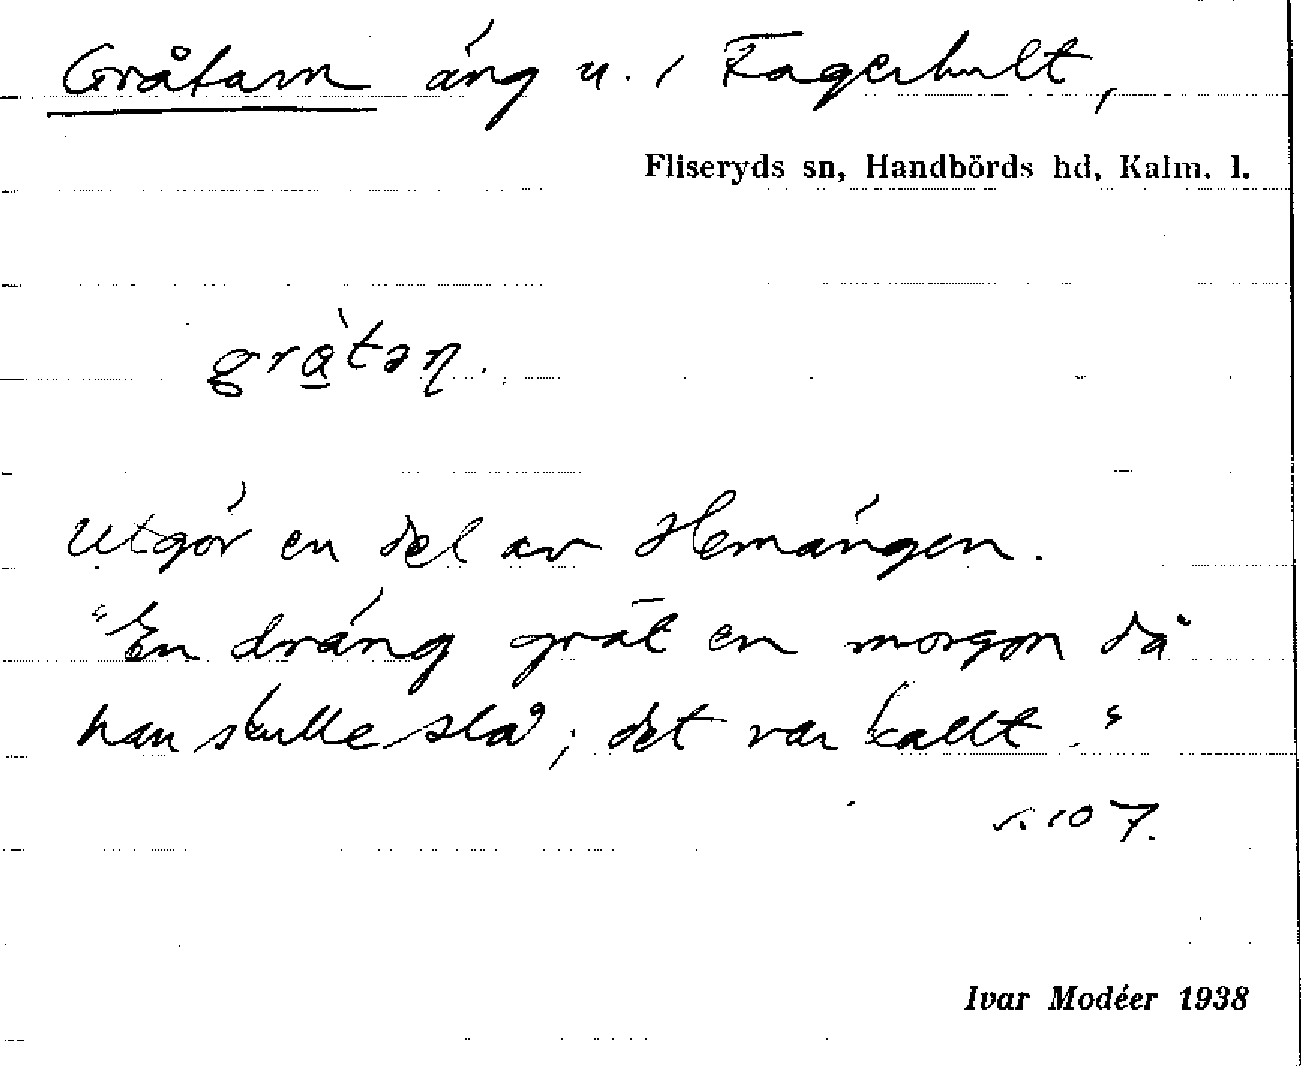 Gråtarn äng u. i Fagerhult,
Fliseryds sn, Handbörds hd, Kalm. l.
grå̀təɳ.
Utgör en del av Hemängen.
"En dräng grät en morgon då
han skulle slå; det var kallt."
s. 107.
Ivar Modéer 1938